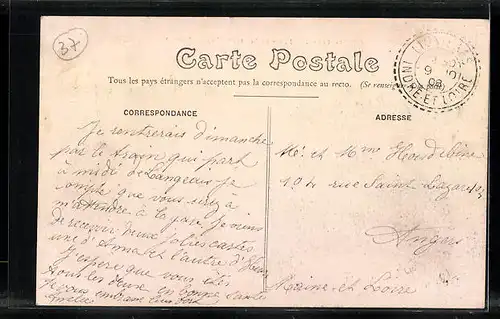 37
Carte Postale
Tous les pays étrangers n'acceptent pas la correspondance au recto. (Se renseigner
CORRESPONDANCE
ADRESSE
INDRE-ET-LOIRE
Je rentrerais dimanche
par le train qui part
à midi de Langeais je
compte que vous serez a
m'attendre à la gare je viens
de recevoir deux jolies cartes
une d'Anna et l'autre d'
J'espère que vous êtes
tous les deux en bonne santé
je vous embrasse bien fort
Mr et Mme
104 rue Saint Lazare
Angers
Maine et Loire